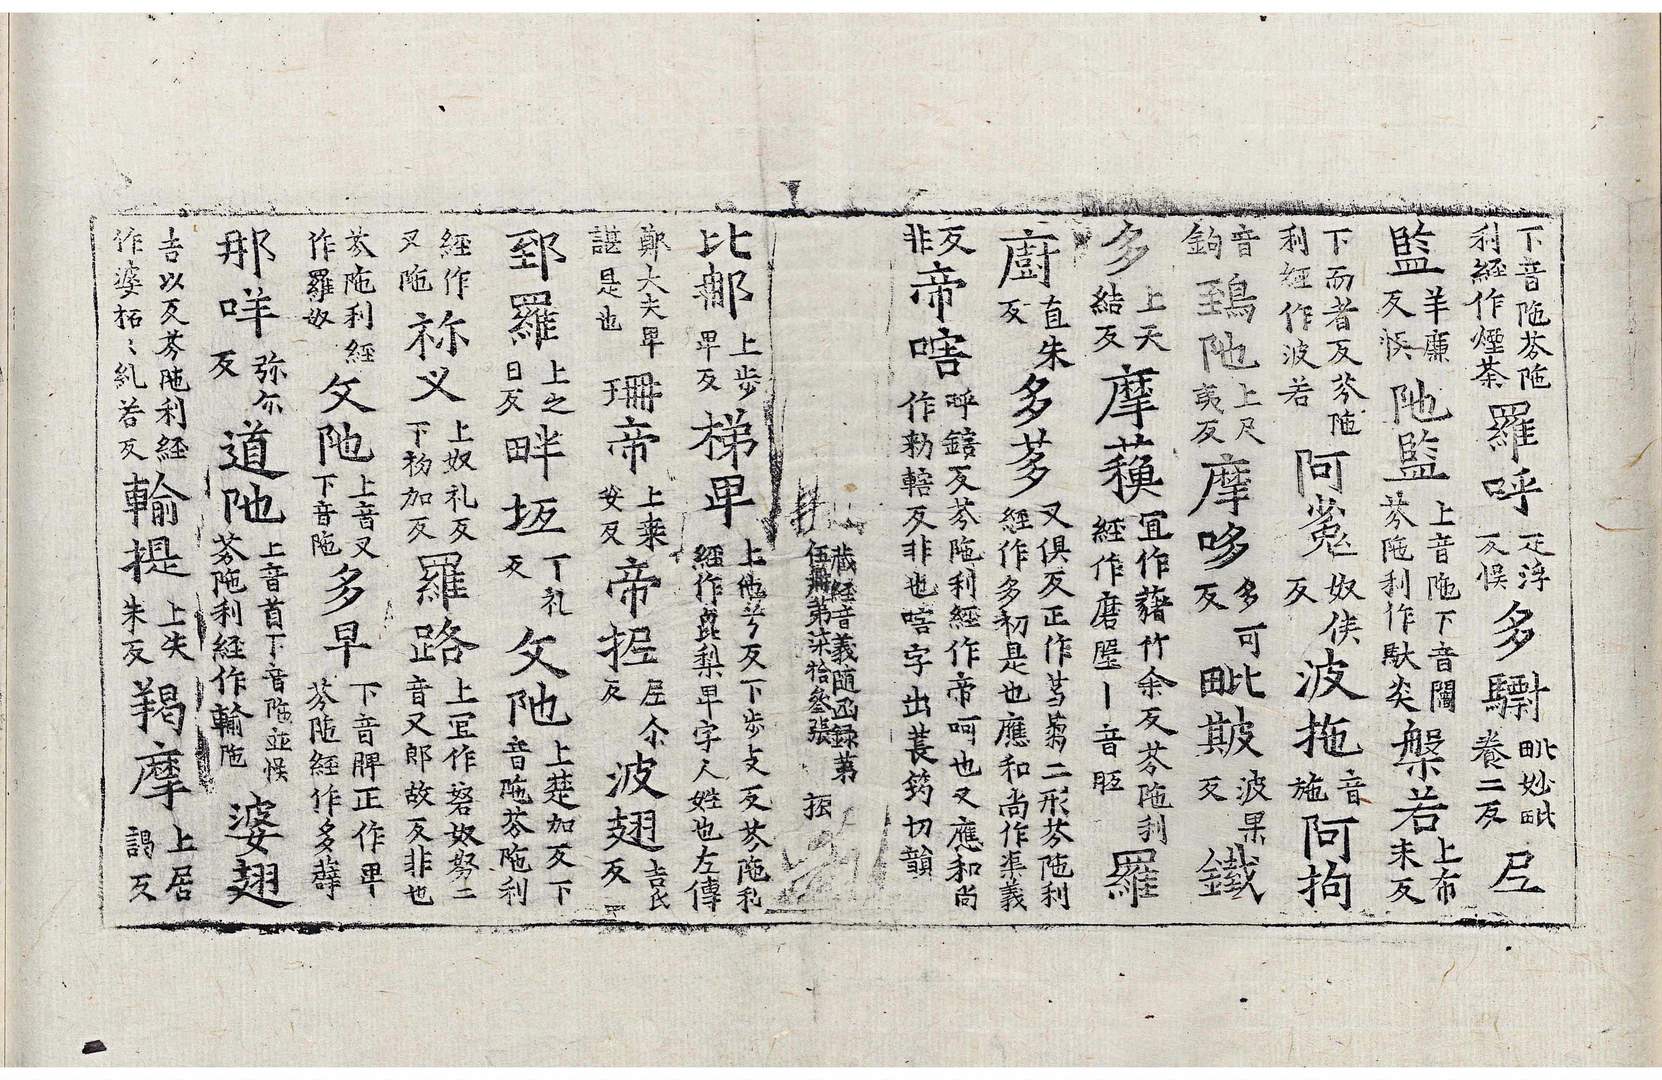 下音陁芬陁利經作煙荼羅呼疋浮反悮多驃毗妙毗養二反𡰱
監羊廉反悮阤監上音陁下音閻芬陁利作馱炎槃若上布末反
下而者反芬陁利經作波若阿菟奴侯反波拖音施阿拘
音鉤鵄阤上尺夷反摩哆多可反毗䟦波果反鐵
多上天結反摩䕸冝作藉竹余反芬陁利經作磨墾丨音胵羅
廚直朱反多茤又俱反正作芻蒭二形芬陁利經作多初是也應和尚作渠義
反非帝嗐呼鎋反芬陁利經作帝呵也又應和尚作勑轄反非也嗐字出萇筠切韻
藏經音義隨函録第伍冊第柒拾叄張
比郍上步畀反梯畀上他兮反下步支反芬陁利經作毘梨畀字人姓也左傳
鄭大夫畀諶是也珊帝上桒安反帝握𡰱尒反波翅吉氏反
郅羅上之日反畔坁丁礼反攵阤上楚加反下音陁芬陁利
經作叉陁祢义上奴礼反下初加反羅路上冝作砮奴努二音又郎故反非也
芬陁利經作羅奴攵阤上音叉下音陁多畀下音脾正作畀芬陁經作多薜
那咩弥尒反道阤上音首下音陁並悮芬陁利經作輸陁婆翅
吉以反芬陁利經作婆柘〻糺若反輸提上失朱反羯摩上居謁反